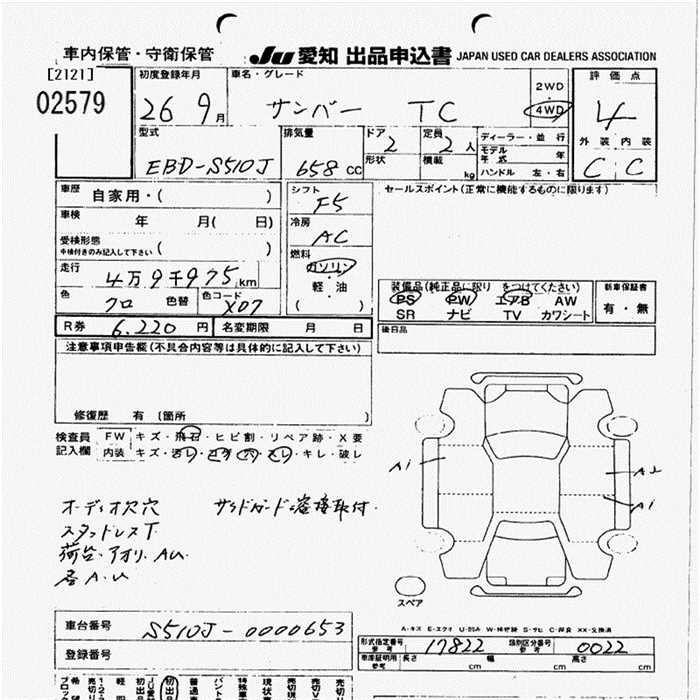 車内保管・守衛保管 JU 愛知 出品申込書 JAPAN USED CAR DEALERS ASSOCIATION
[2121]
02579
初度登録年月 車名・グレード 2WD 評価点
26 9月 サンバー TC 4WD 4
型式 排気量 ドア 定員 ディーラー・並行 外装 内装
EBD-S510J 658 CC 2 2人 モデル年式 年 C C
形状 積載 kg ハンドル 左・右
車歴 自家用・( ) シフト セールスポイント(正常に機能するものに限ります)
F5
車検 年 月( 日) 冷房
受検形態 AC
中検付きのみ記入して下さい ( ) 燃料
走行 ガソリン 装備品(純正品に限り をつけてください) 新車保証書
4万9千975km 軽・油 PS PW エアB AW 有・無
色 クロ 色替 色コード X07 ( ) SR ナビ TV カワシート
R券 6,220円 名変期限 月 日 後日品
注意事項申告欄(不具合内容等は具体的に記入して下さい)
修復歴 有 (箇所 )
検査員 FW キズ・飛石・ヒビ割・リペア跡・X要
記入欄 内装 キズ・汚レ・コゲ・穴・スレ・キレ・破レ
A1 A2
A1
オーディオ欠穴 サイドガード溶接取付
スタッドレスT
荷台・アオリ・AU
各A.U
スペア
A-キズ E-エクボ U-凹み W-補修跡 S-サビ C-腐食 XX-交換済
車台番号 S510J-0000653
型式指定番号 参考 17822 類別区分番号 参考 0022
登録番号
車庫証明用 参考 長さ cm 幅 cm 高さ cm